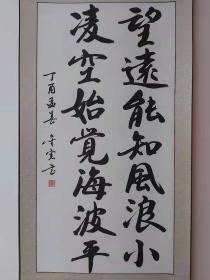 望遠能知風浪小
凌空始覺海波平
丁酉孟春